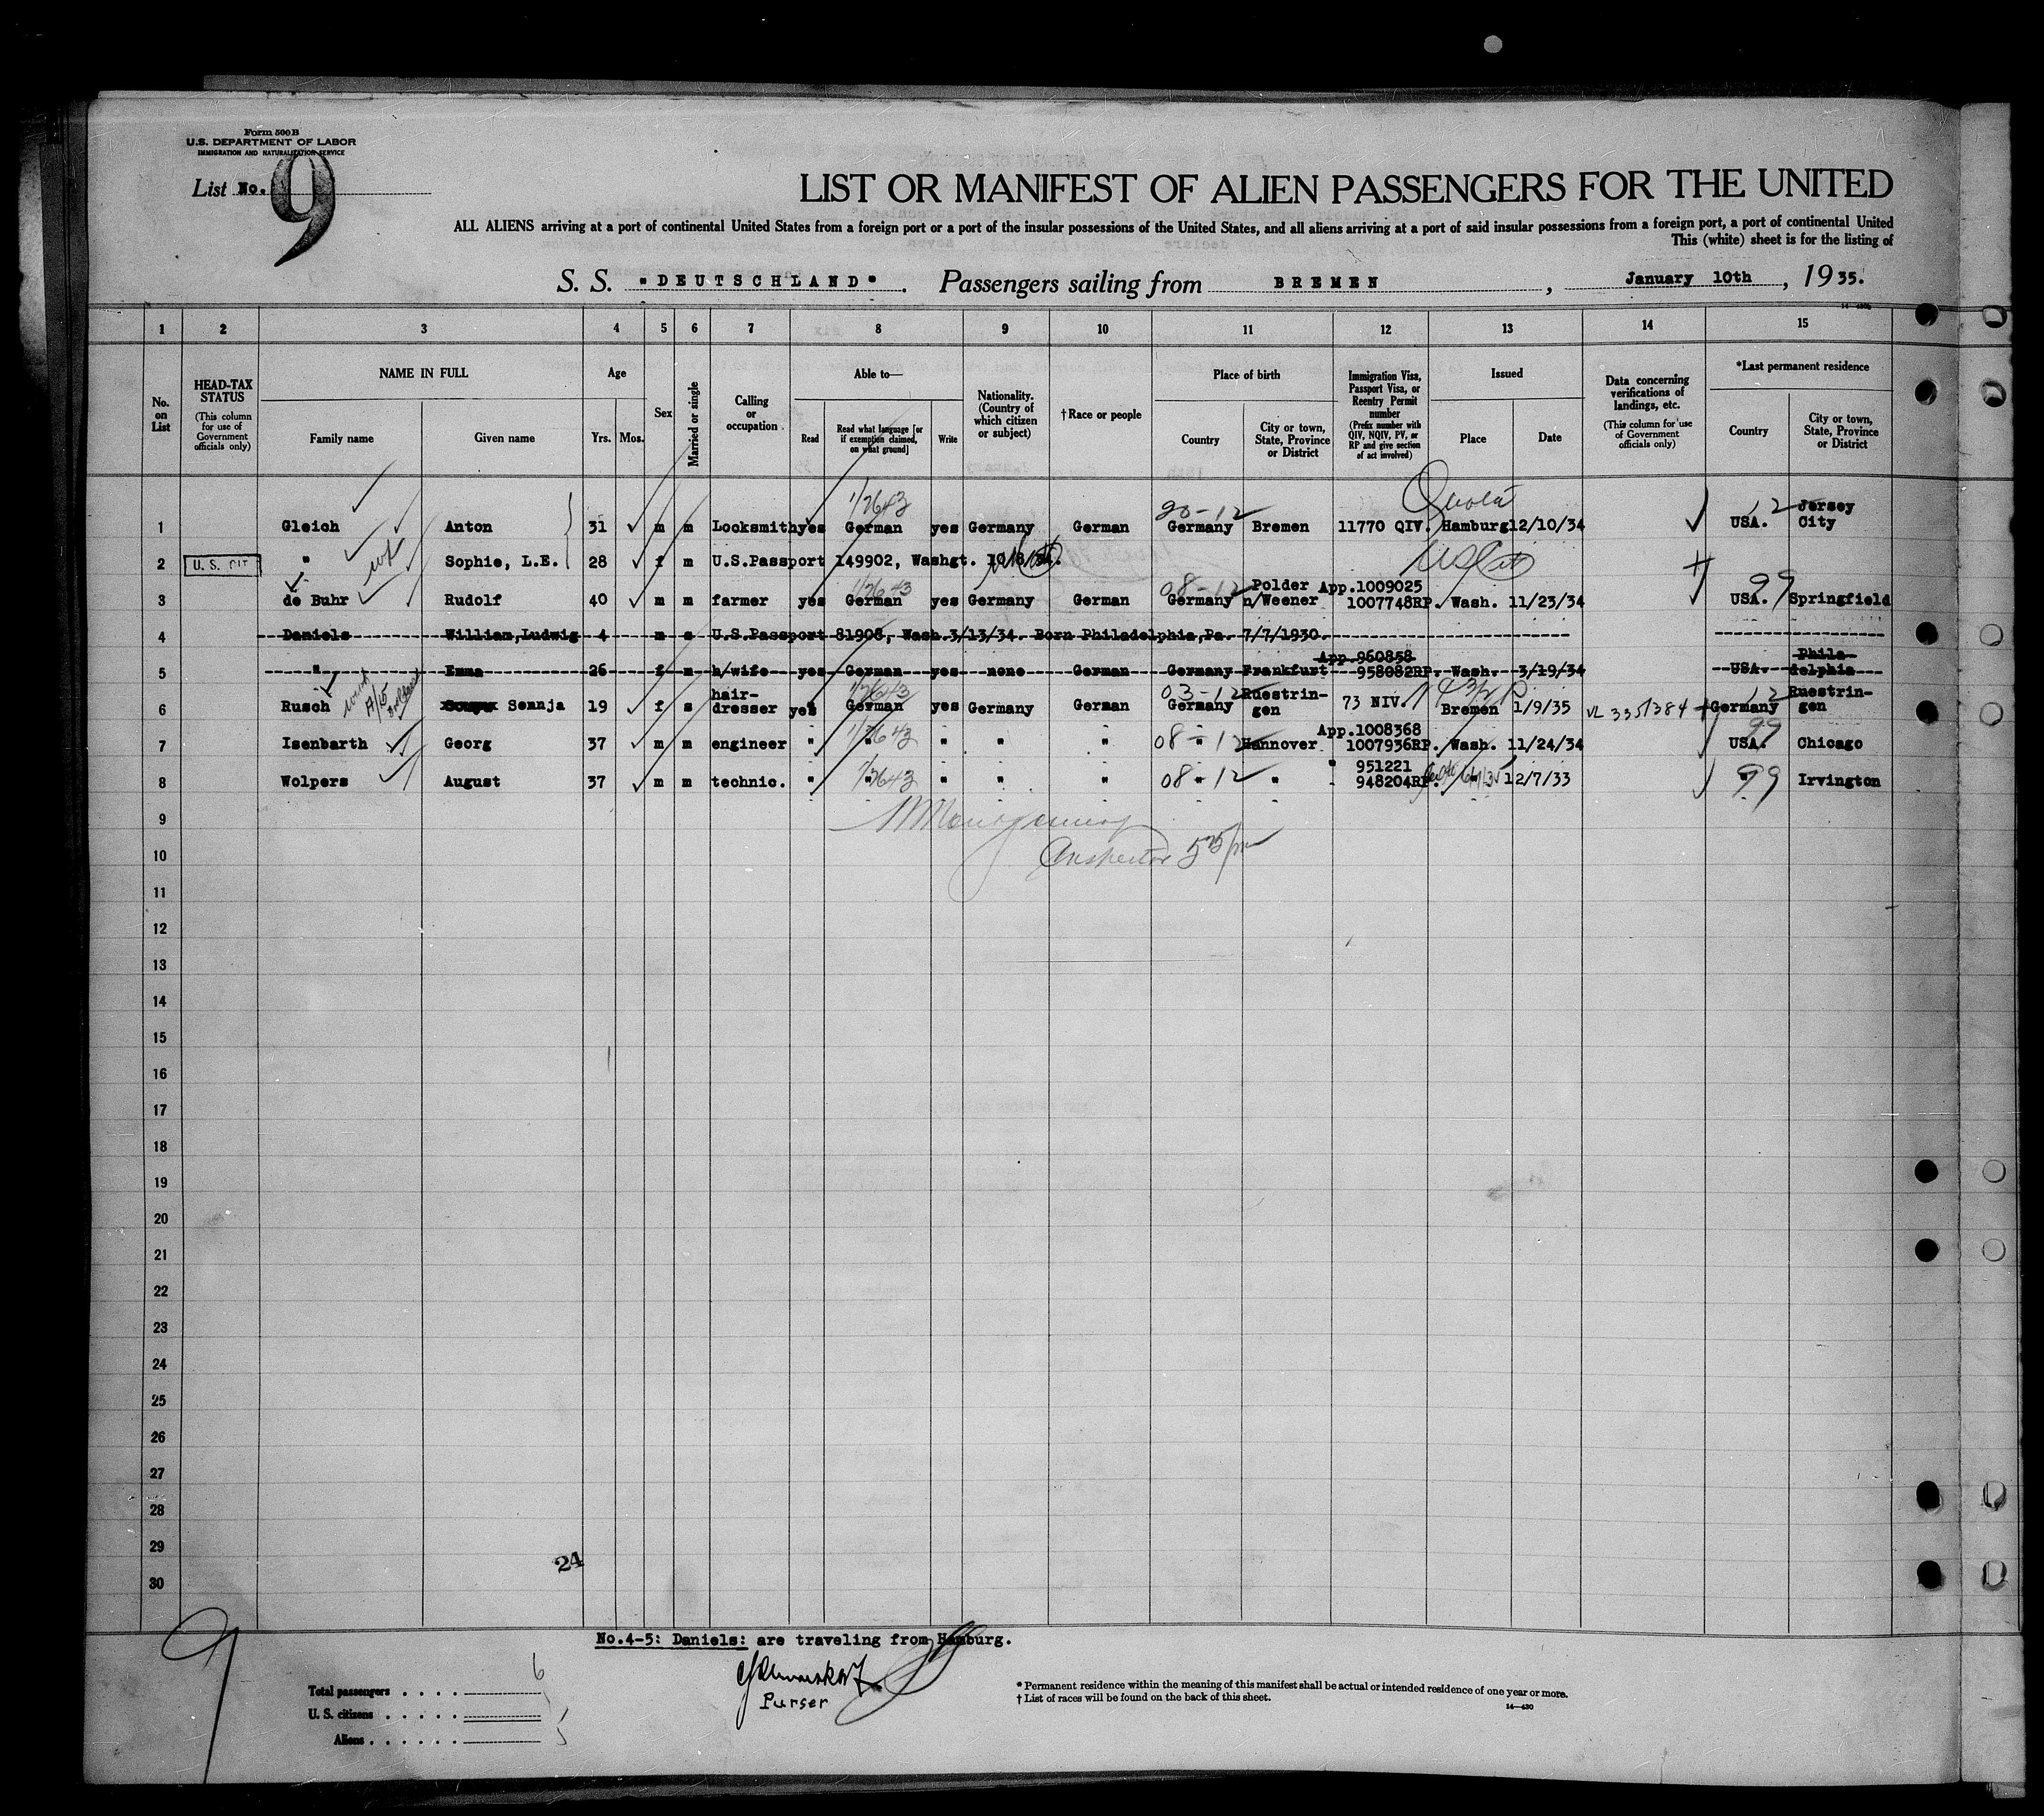 Form 500 B
U.S. DEPARTMENT OF LABOR
IMMIGRATION AND NATURALIZATION SERVICE
List No. 9
LIST OR MANIFEST OF ALIEN PASSENGERS FOR THE UNITED
ALL ALIENS arriving at a port of continental United States from a foreign port or a port of the insular possessions of the United States, and all aliens arriving at a port of said insular possessions from a foreign port, a port of continental United
This (white) sheet is for the listing of
S. S. "DEUTSCHLAND". Passengers sailing from BREMEN, January 10th, 1935.
1 2 3 4 5 6 7 8 9 10 11 12 13 14 15
No. on List
HEAD-TAX STATUS (This column for use of Government officials only)
NAME IN FULL
Family name Given name
Age
Yrs. Mos.
Sex
Married or single
Calling or occupation
Able to—
Read Read what language [or if exemption claimed, on what ground] Write
Nationality. (Country of which citizen or subject)
† Race or people
Place of birth
Country City or town, State, Province or District
Immigration Visa, Passport Visa, or Reentry Permit number (Prefix number with QIV, NQIV, PV, or RP and give section of act involved)
Issued
Place Date
Data concerning verifications of landings, etc. (This column for use of Government officials only)
*Last permanent residence
Country City or town, State, Province or District
1/2643 20-12 Quota 12
1 Gleich Anton 31 m m Locksmith yes German yes Germany German Germany Bremen 11770 QIV. Hamburg 12/10/34 USA. Jersey City
2 U. S. CIT " Sophie, L.E. 28 f m U.S.Passport 149902, Washgt. 10/8/34. US Cit
1/2643 08-12 99
3 de Buhr Rudolf 40 m m farmer yes German yes Germany German Germany Polder n/Weener App.1009025 1007748RP. Wash. 11/23/34 USA. Springfield
4 Daniels William,Ludwig 4 m s U.S.Passport 81908, Wash.3/13/34. Born Philadelphia,Pa. 7/7/1930.
5 " Emma 26 f m h/wife yes German yes none German Germany Frankfurt App.960858 958082RP. Wash. 3/19/34 USA. Philadelphia
1/2643 03-12 12
6 Rusch Sennja 19 f s hair-dresser yes German yes Germany German Germany Ruestrin-gen 73 NIV. Bremen 1/9/35 VL 335/384 Germany Ruestrin-gen
7 Isenbarth Georg 37 m m engineer " " 1/2643 " " " 08 - 12 Hannover App.1008368 1007936RP. Wash. 11/24/34 USA. 99 Chicago
8 Wolpers August 37 m m technic. " " 1/2643 " " " 08 " 12 " " 951221 948204RP. " 12/7/33 " 99 Irvington
9
Inspector 5 25 pm
10
11
12
13
14
15
16
17
18
19
20
21
22
23
24
25
26
27
28
29
24
30
No.4-5: Daniels: are traveling from Hamburg.
Purser
Total passengers . . . . 6
U. S. citizens . . . . . 1
Aliens . . . . . . 5
* Permanent residence within the meaning of this manifest shall be actual or intended residence of one year or more.
† List of races will be found on the back of this sheet.
14—430
9